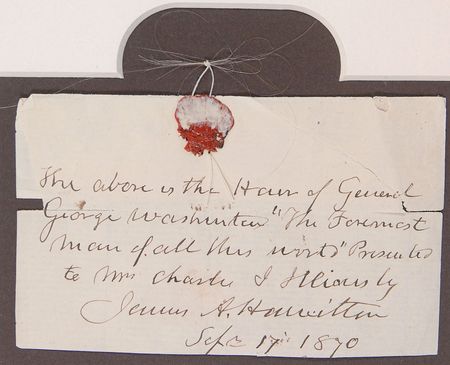 The above is the Hair of General
George Washinton "The Foremost
man of all this world" Presented
to Mrs Charles J by
James A. Hamilton
Sept 17 1870